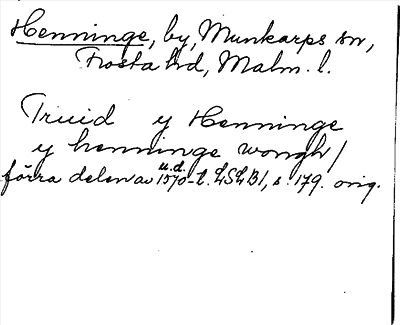 Henninge, by, Munkarps sn,
Frosta hd, Malm. l.
Truid y Henninge
y henninge wongh /
u.d.
förra delen av 1570-t. LSLB1, s. 179. orig.